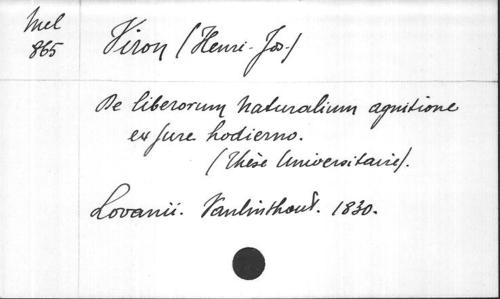 Mel
865
Viron (Henri-Jos.)
De liberorum naturalium agnitione
ex jure hodierno.
(Thèse Universitaire).
Lovanii. Vanlinthout. 1830.